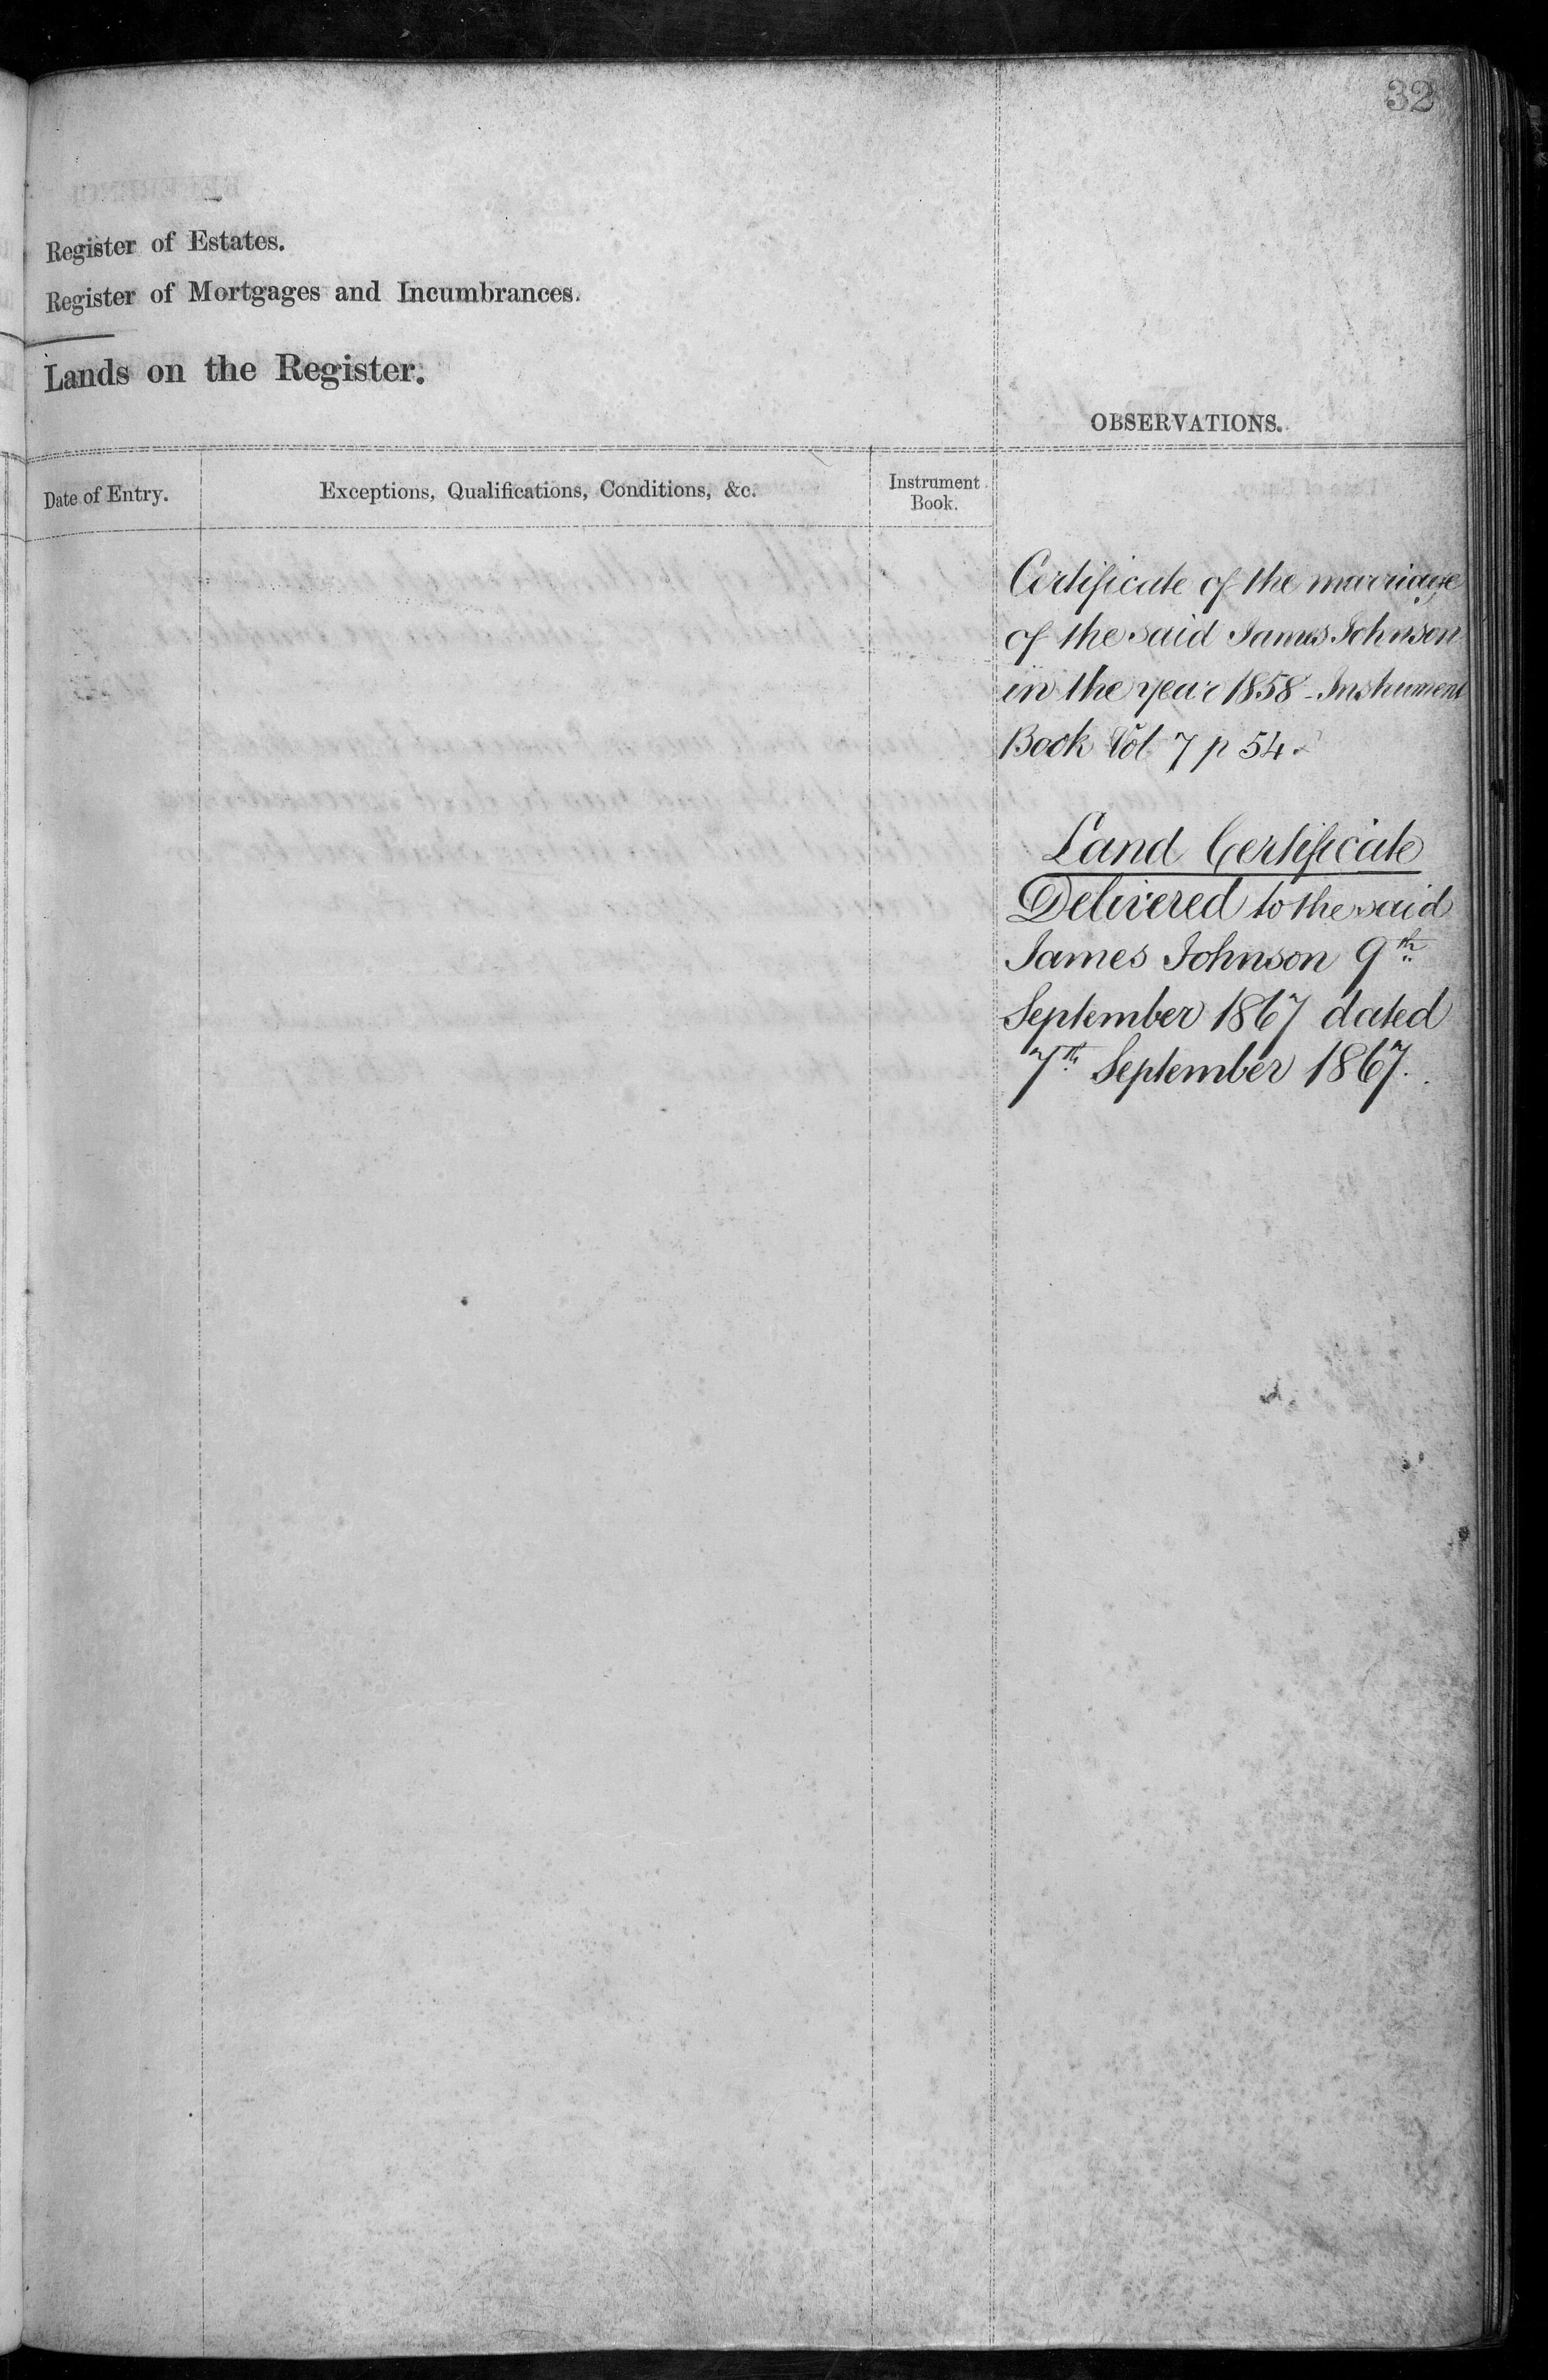 32
Register of Estates.
Register of Mortgages and Incumbrances.
Lands on the Register.
OBSERVATIONS.
Date of Entry.
Exceptions, Qualifications, Conditions, &c.
Instrument
Book.
Certificate of the marriage
of the said James Johnson
in the year 1858 - Instrument
Book Vol 7 p 54.
Land Certificate
Delivered to the said
James Johnson 9th
September 1867 dated
7th September 1867.